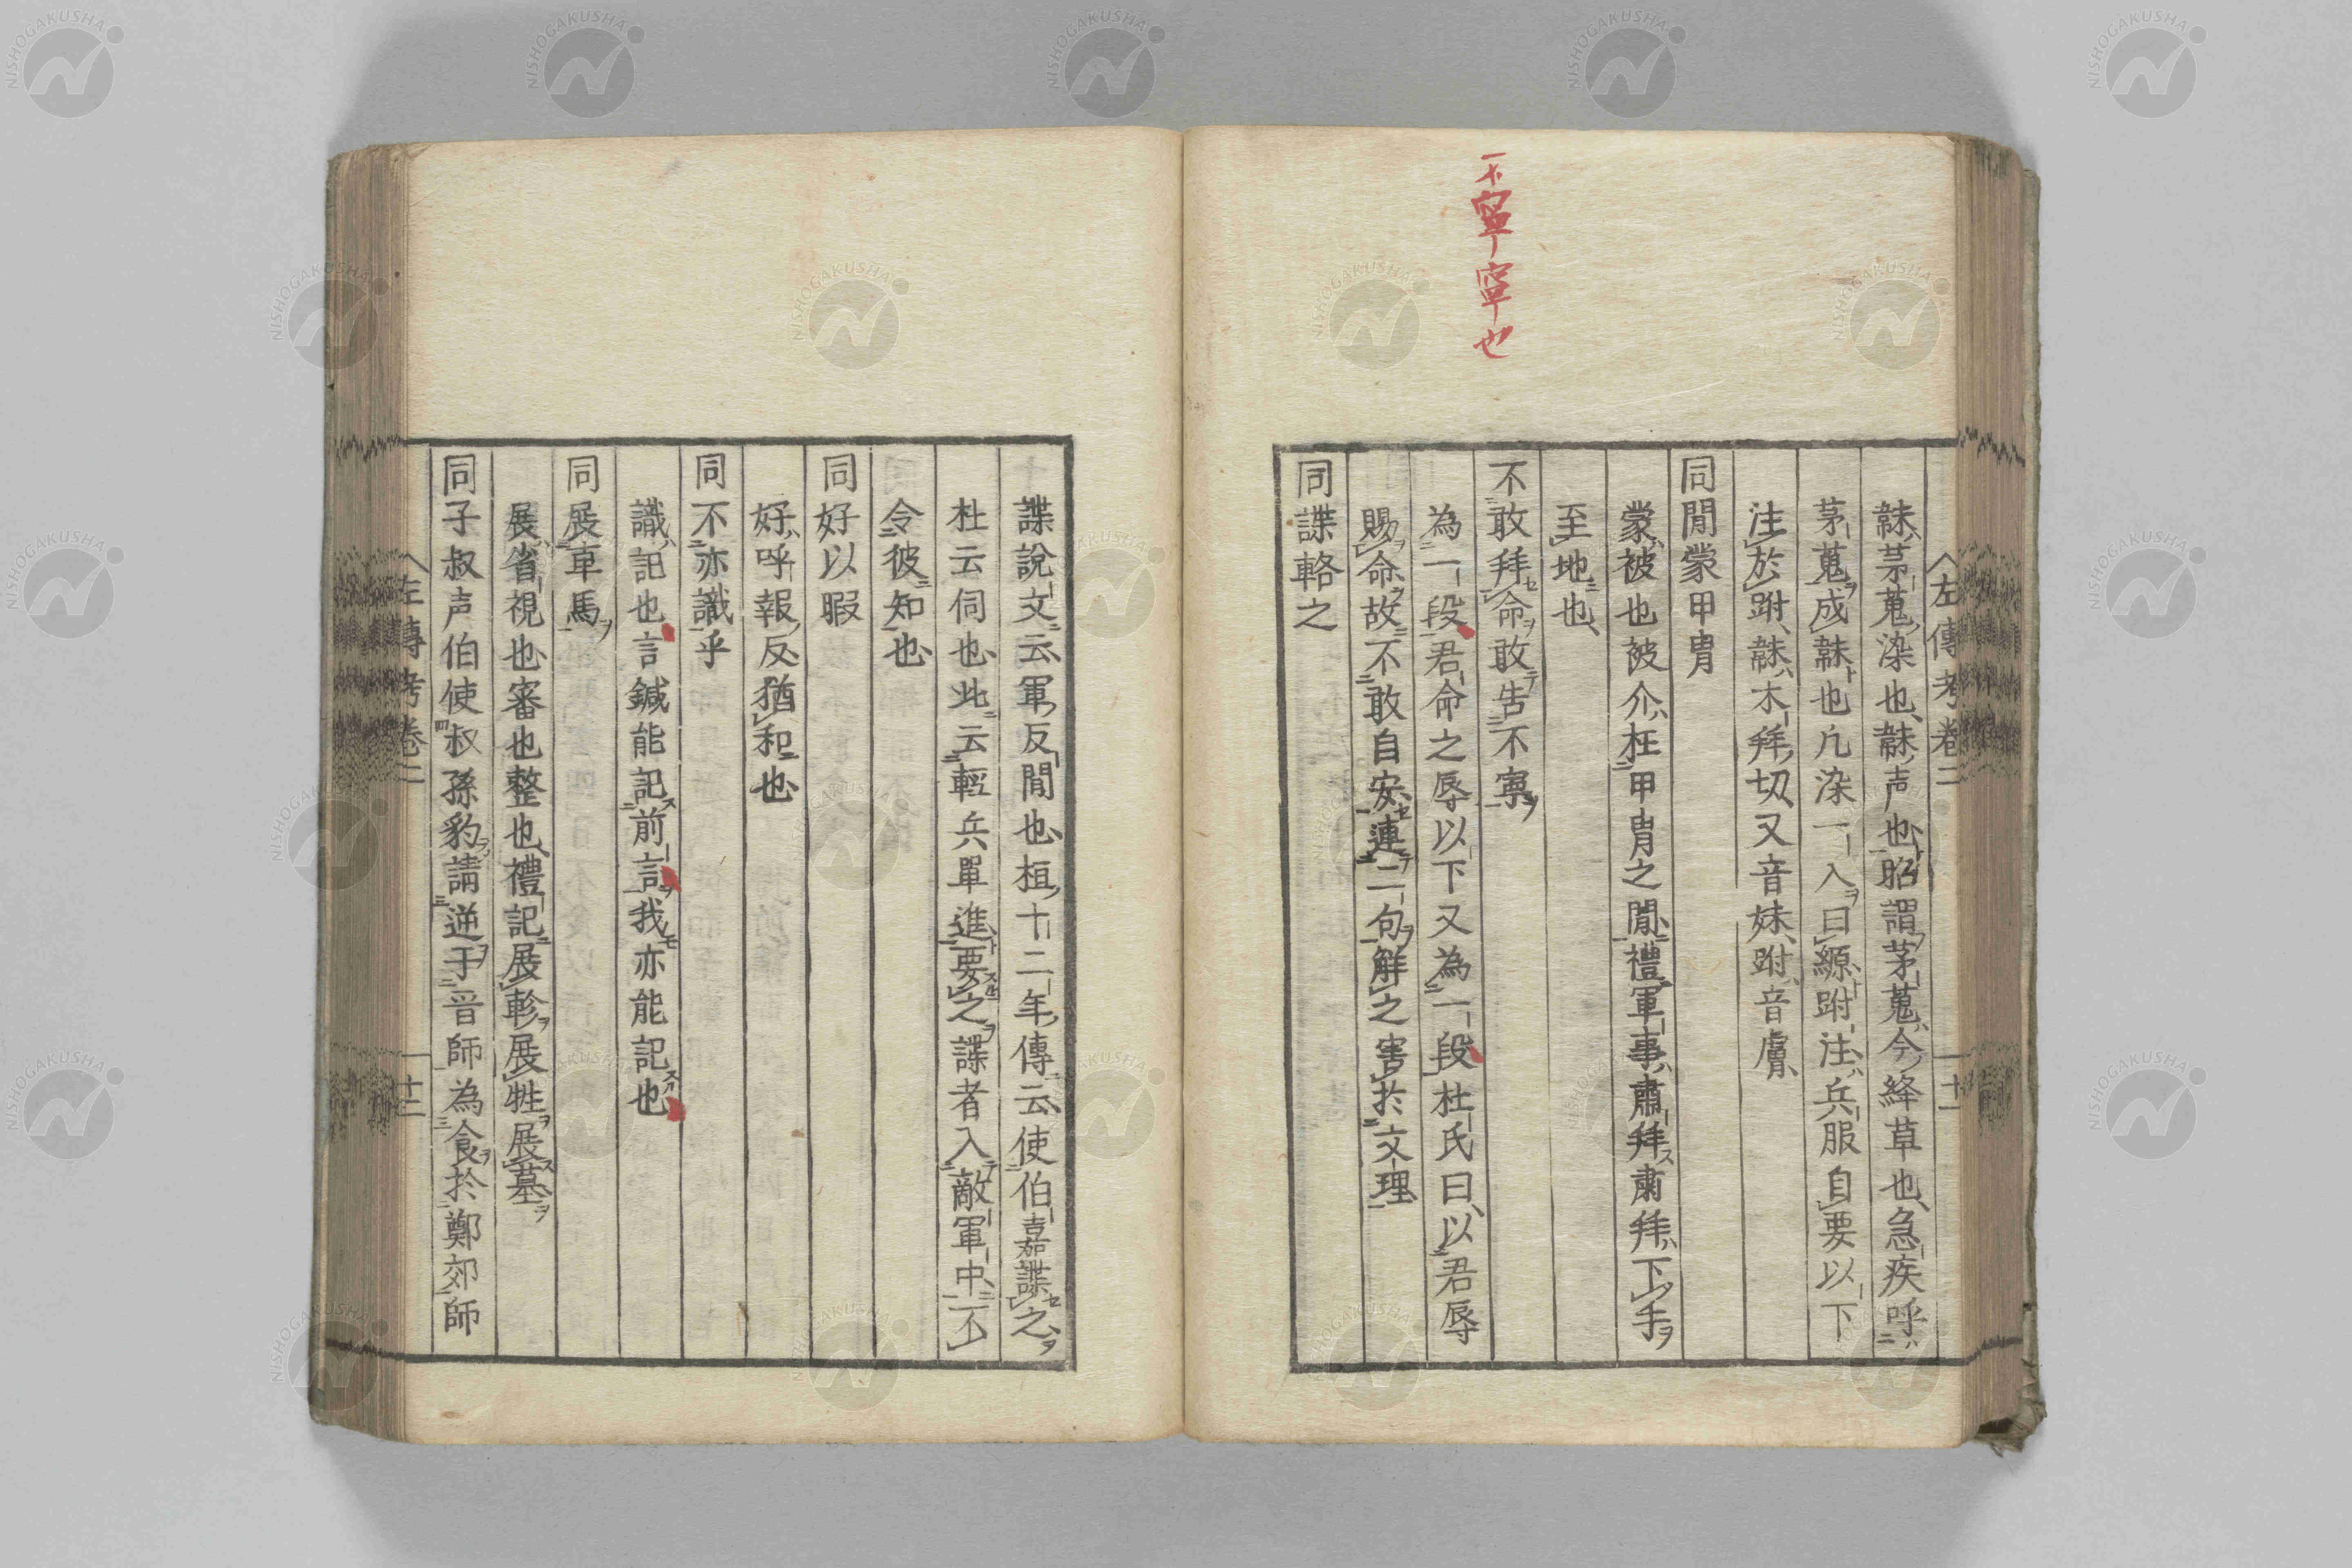 不寧寧也
左傳考卷二
十一
韎茅蒐染也韎声也昭謂茅蒐今絳草也急疾呼
茅蒐成韎也凡染一入曰縓跗注兵服自要以下
注於跗韎木拜切又音妹跗音膚
同閒蒙甲冑
蒙被也被介在甲冑之閒禮軍事肅拜肅拜下手
至地也
不敢拜命敢告不寧
為一段君命之辱以下又為一段杜氏曰以君辱
賜命故不敢自安連二句解之害於文理
同諜輅之
諜說文云軍反閒也桓十二年傳云使伯嘉諜之
杜云伺也此云輕兵單進要之諜者入敵軍中不
令彼知也
同好以暇
好呼報反猶和也
同不亦識乎
識記也言鍼能記前言我亦能記也
同展車馬
展省視也審也整也禮記展軫展牲展墓
同子叔声伯使叔孫豹請逆于晉師為食於鄭郊師
左傳考卷二
十二
NISHOGAKUSHA